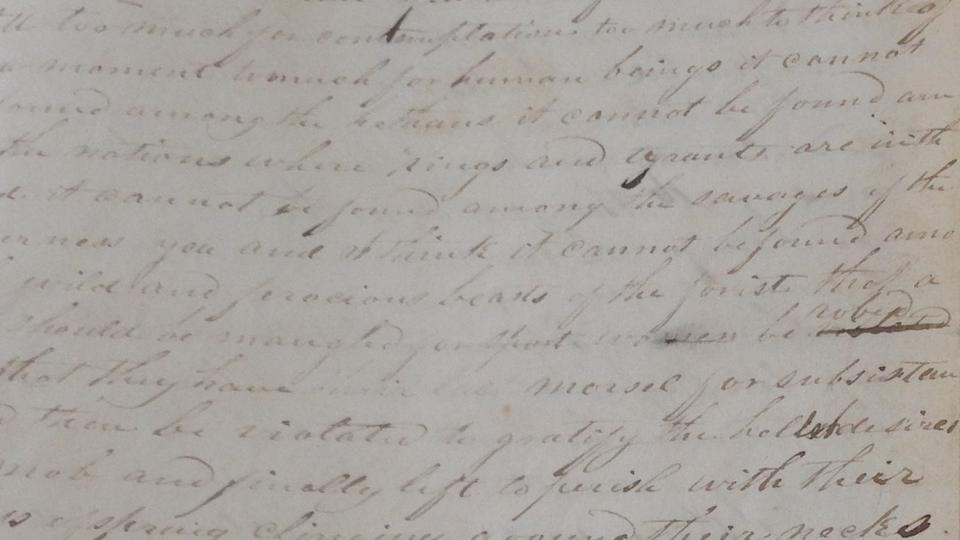 too much for contemplation too much to think of
a moment to much for human beings it cannot
found among the hethans it cannot be found am
the nations where kings and tyrants are inth
it cannot be found among the savages of the
erness you and I think it cannot be found amo
wild and ferocious beasts of the forist that a
should be mangled for sport women be robed
that they have morsel for subsistan
then be violated to gratify the hellish desires
mob and finally left to perish with their
ofspring clinging around their necks